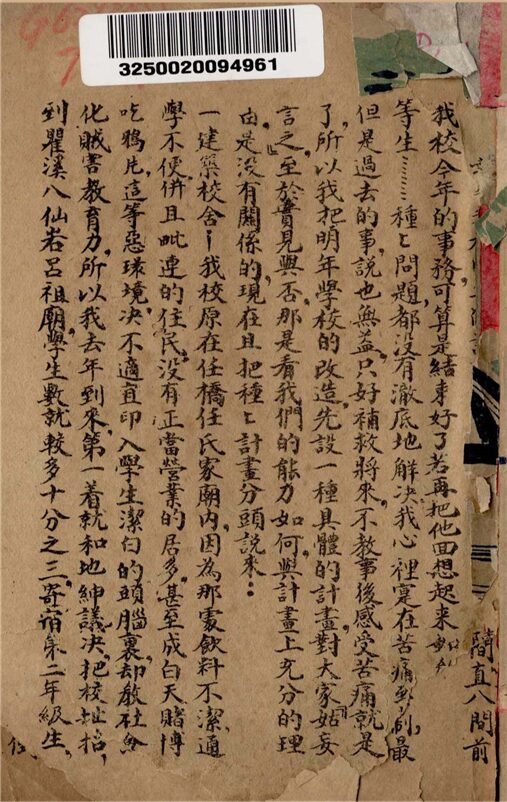 3250020094961
我校今年的事務可算是結束好了若再把他回想起來
等生………種々問題,都沒有澈底地解決我心裡寔在苦痛
最但是過去的事,說也無益,只好補救將來,不教事後感受苦痛就是
了,所以我把明年學校的改造,先設一種具體的計畫,對大家姑妄
言之,至於實見與否,那是看我們的能力如何,與計畫上充分的理
由,是沒有關係的,現在且把種々計畫分頭說來:
一建築校舍—我校原在任橋任氏家廟內,因為那處飲料不潔,通
學不便,併且毗連的住民,沒有正當營業的居多,甚至成白天賭博
吃鴉片,這等惡環境,决不適宜印入學生潔白的頭腦裏,却教社會
化賊害教育力,所以我去年到來,第一着就和地紳議决,把校址招
到瞿溪八仙岩呂祖廟,學生數就較多十分之三,寄宿第二年級生,
簡直八間前